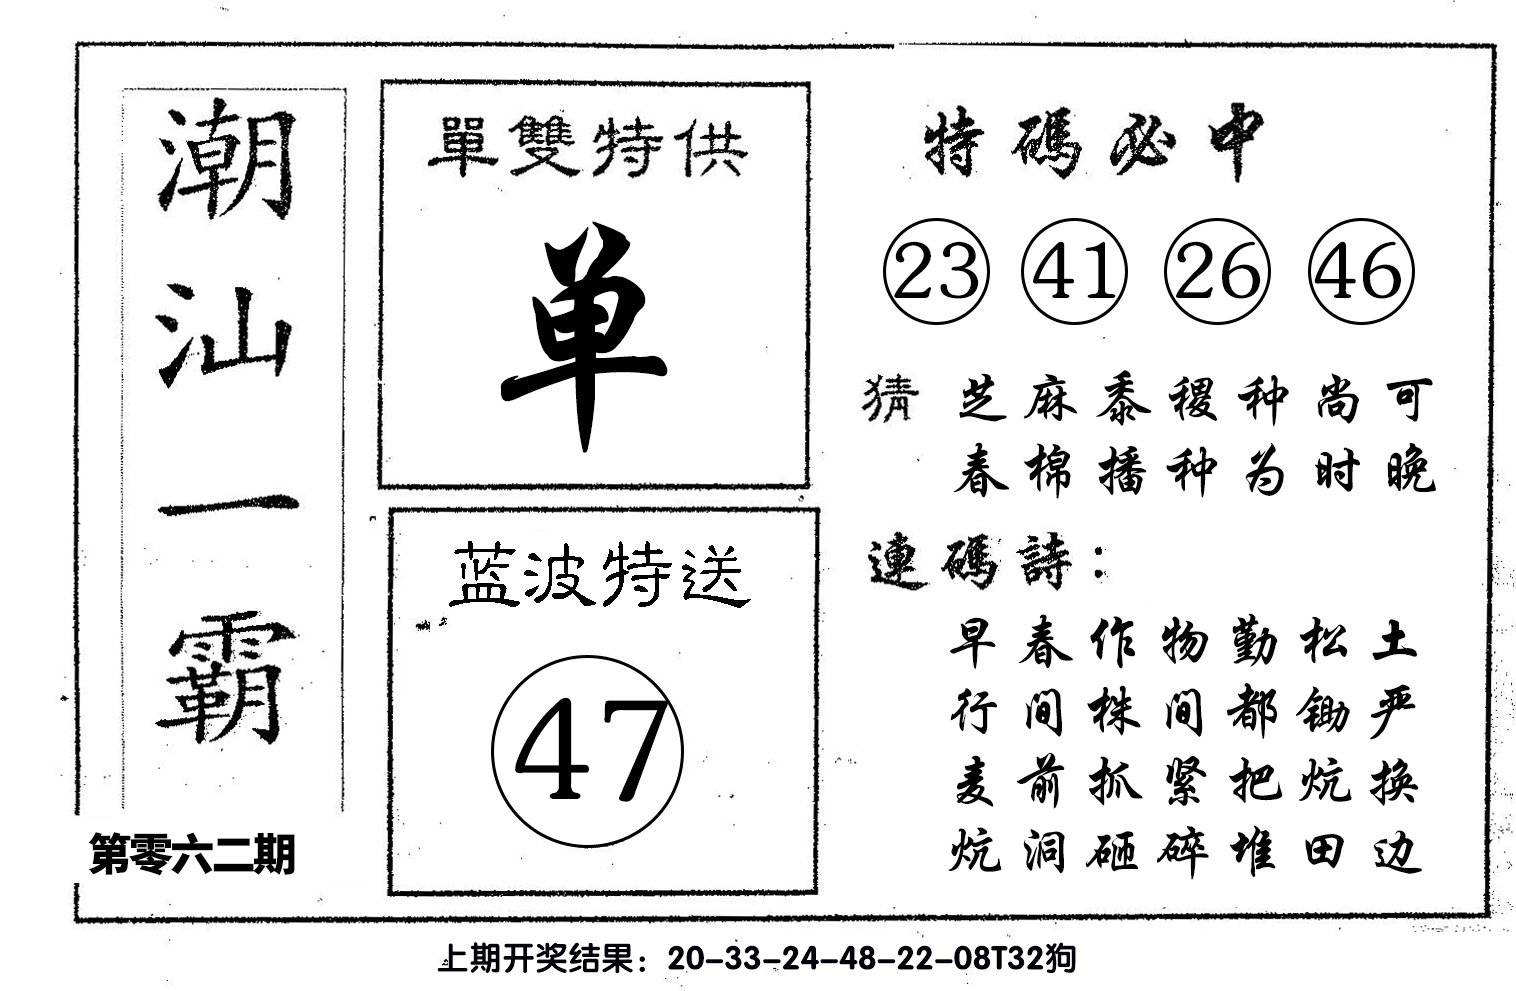 潮汕一霸
第零六二期
單雙特供
单
蓝波特送
47
特碼必中
23 41 26 46
猜 芝麻黍稷种尚可
春棉播种为时晚
連碼詩：
早春作物勤松土
行间株间都锄严
麦前抓紧把炕换
炕洞砸碎堆田边
上期开奖结果：20-33-24-48-22-08T32狗